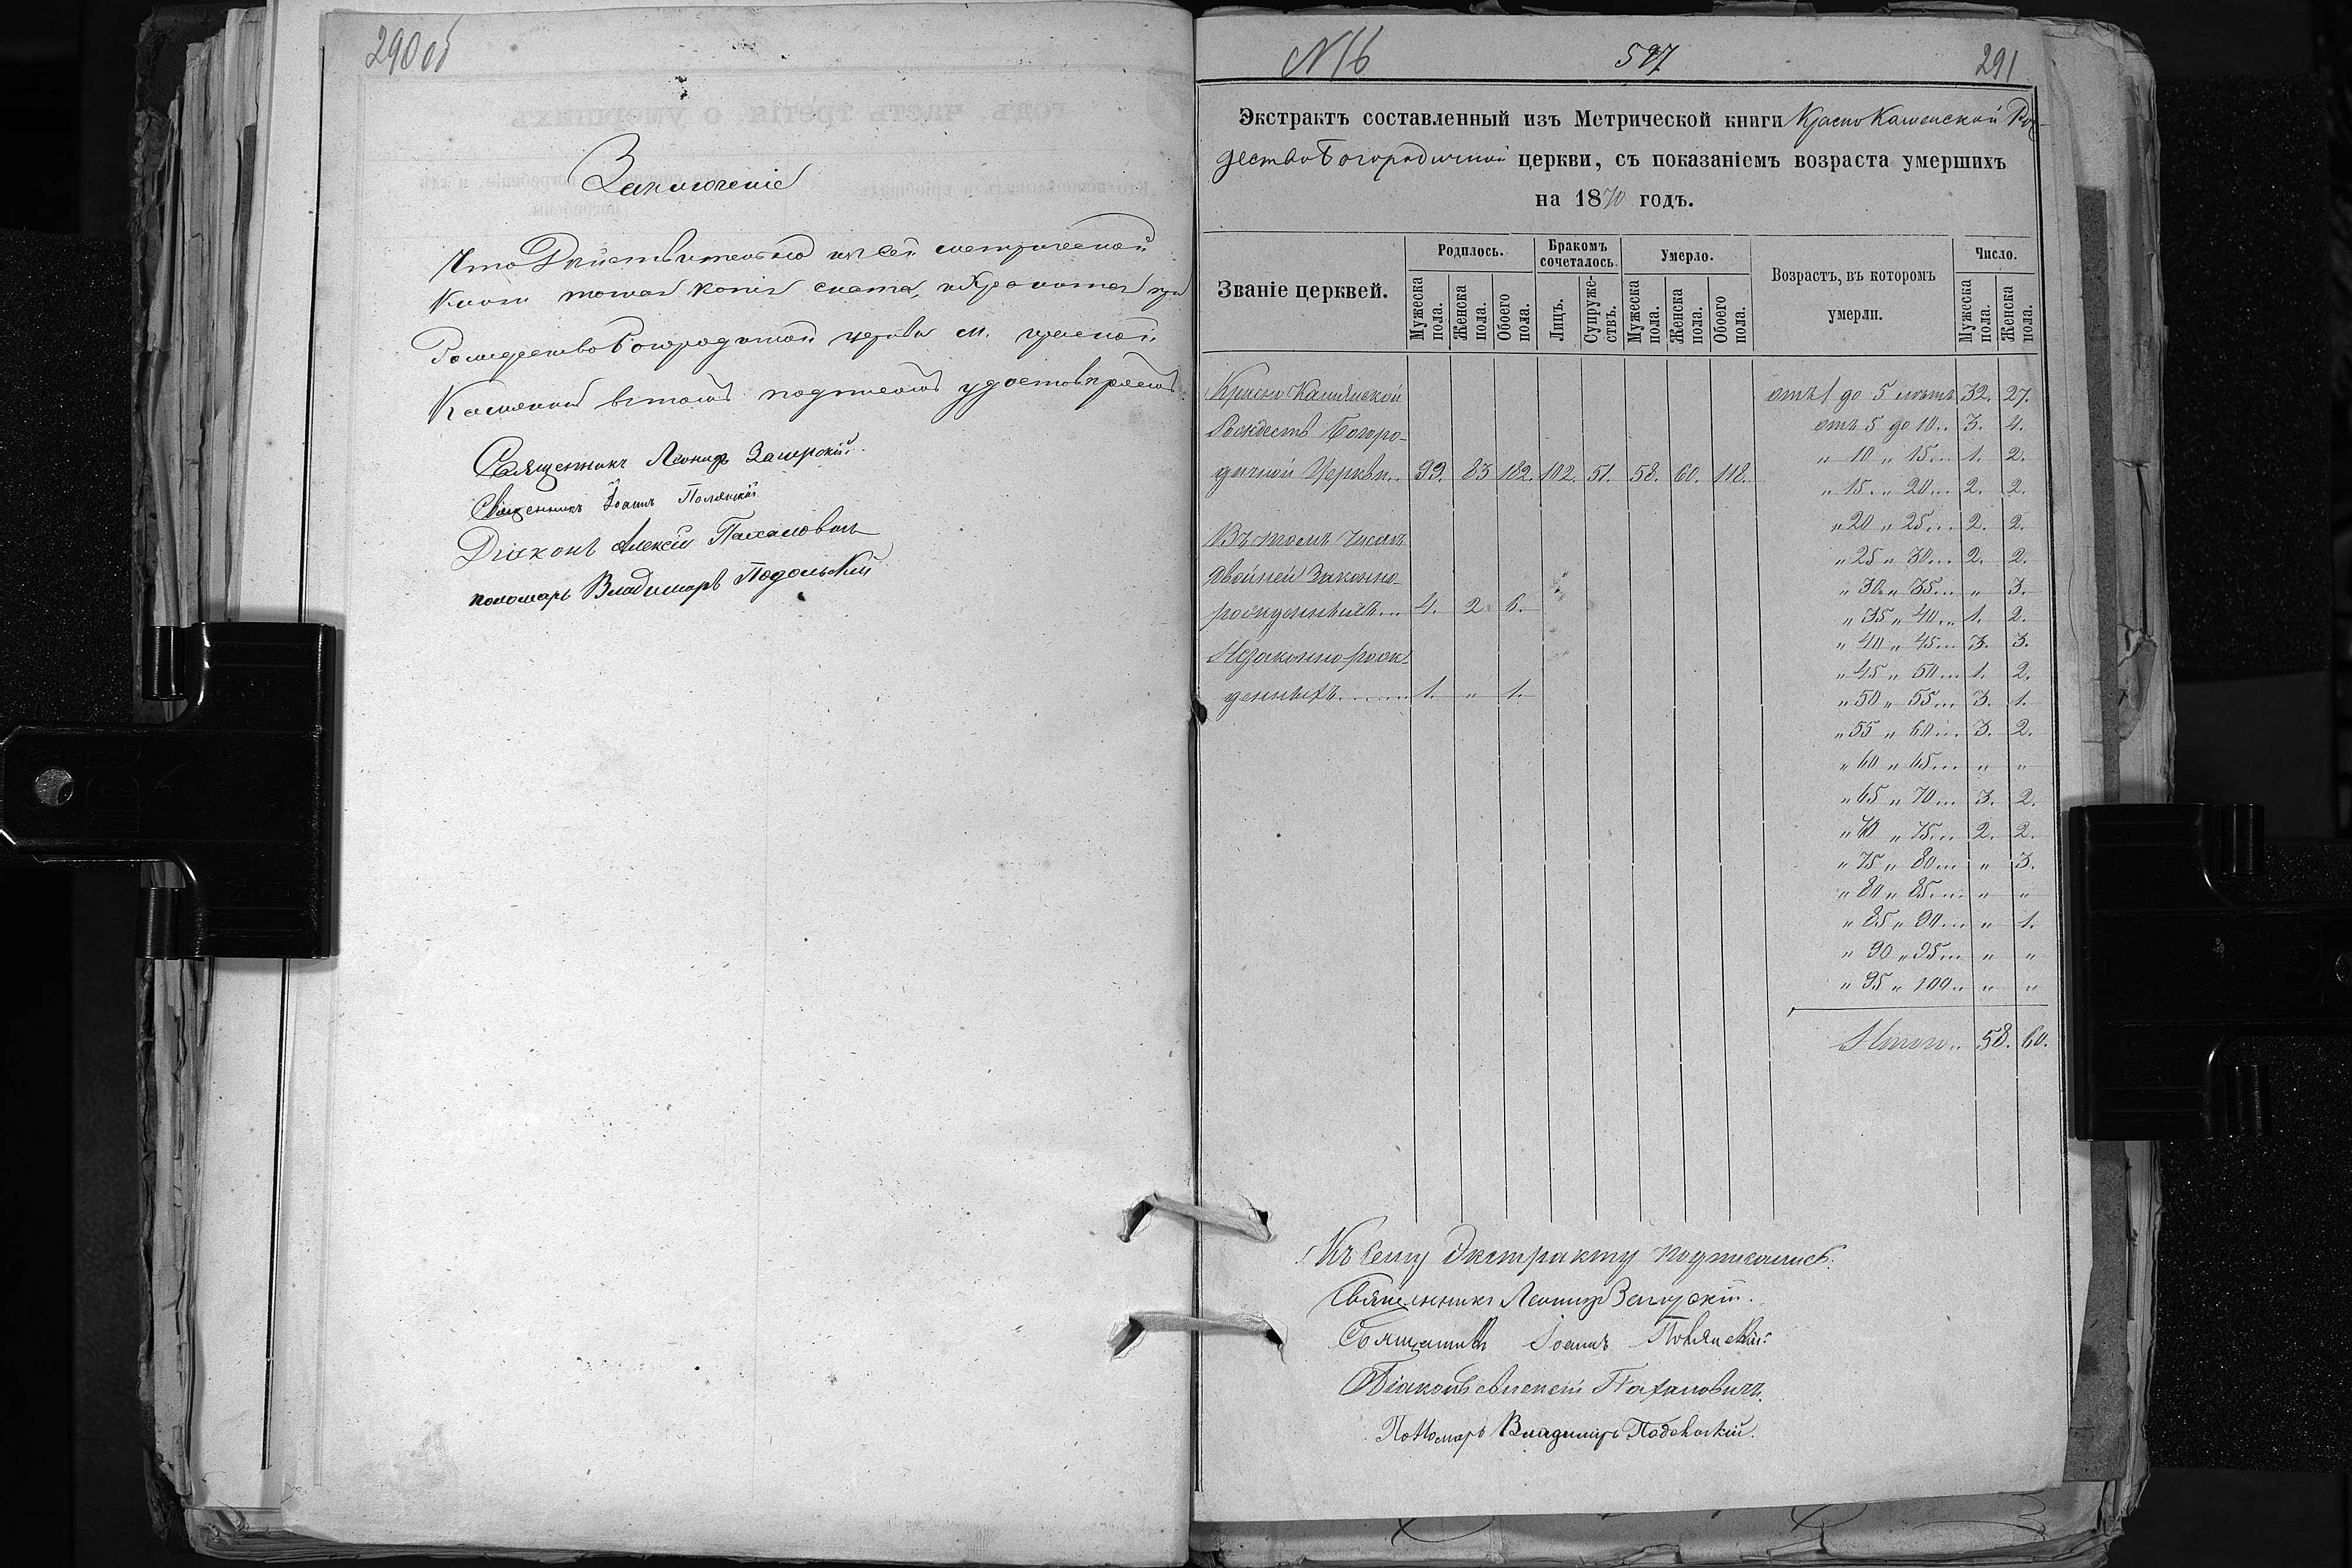 290 об
Заключеніе
Что Действительно из сей метрической
Книги точная копія снята, и хранится при
Рождество Богородичной церкви м. красной
Каменки въ томъ подписомъ удостовѣряемъ
Священникъ Леонидъ Загорскій.
Священникъ Іоаннъ Полянскій
Діяконъ Алексій Пахаловичъ
пономарь Владимиръ Подольскій
N 16 597 291
Экстрактъ составленный изъ Метрической книги Красно Каменской Рож-
дество Богородичной церкви, съ показаніемъ возраста умершихъ
на 1870 годъ.
Званіе церквей. Родилось. Бракомъ сочеталось. Умерло. Возрастъ, въ которомъ умерли. Число.
Мужеска пола. Женска пола. Обоего пола. Лицъ. Супруже-ствъ. Мужеска пола. Женска пола. Обоего пола. Мужеска пола. Женска пола.
Красно Камянской
Рождеств Богоро-
дичной Церкви.. 99. 83 182. 102. 51. 58. 60. 118.
Въ томъ числѣ
двойней Законно-
рожденныхъ... 4. 2. 6.
Незаконно рож-
денныхъ....... 1. „ 1.
отъ 1 до 5 лѣтъ 32. 27.
отъ 5 до 10.. 3. 4.
„ 10 „ 15... 1. 2.
„ 15. „ 20... 2. 2.
„ 20 „ 25... 2. 2.
„ 25 „ 30... 2. 2.
„ 30 „ 35... „ 3.
„ 35 „ 40... 1. 2.
„ 40 „ 45... 3. 3.
„ 45 „ 50... 1. 2.
„ 50 „ 55... 3. 1.
„ 55 „ 60... 3. 2.
„ 60 „ 65... „ „
„ 65 „ 70... 3. 2.
„ 70 „ 75... 2. 2.
„ 75 „ 80... „ 3.
„ 80 „ 85... „ „
„ 85 „ 90... „ 1.
„ 90 „ 95... „ „
„ 95 „ 100.. „ „
Итого.. 58. 60.
Къ сему Экстракту подписались:
Священникъ Леонидъ Загорскій.
Священникъ Іоаннъ Полянскій:
Діаконъ Алексій Пахаловичъ.
Пономарь Владимиръ Подольскій.